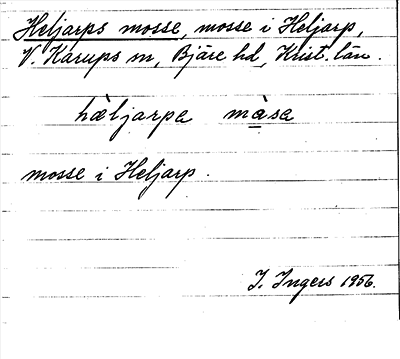 Heljarps mosse, mosse i Heljarp,
V. Karups sn, Bjäre hd, Krist. län.
hàljarpa màsa
mosse i Heljarp.
I. Ingers 1956.